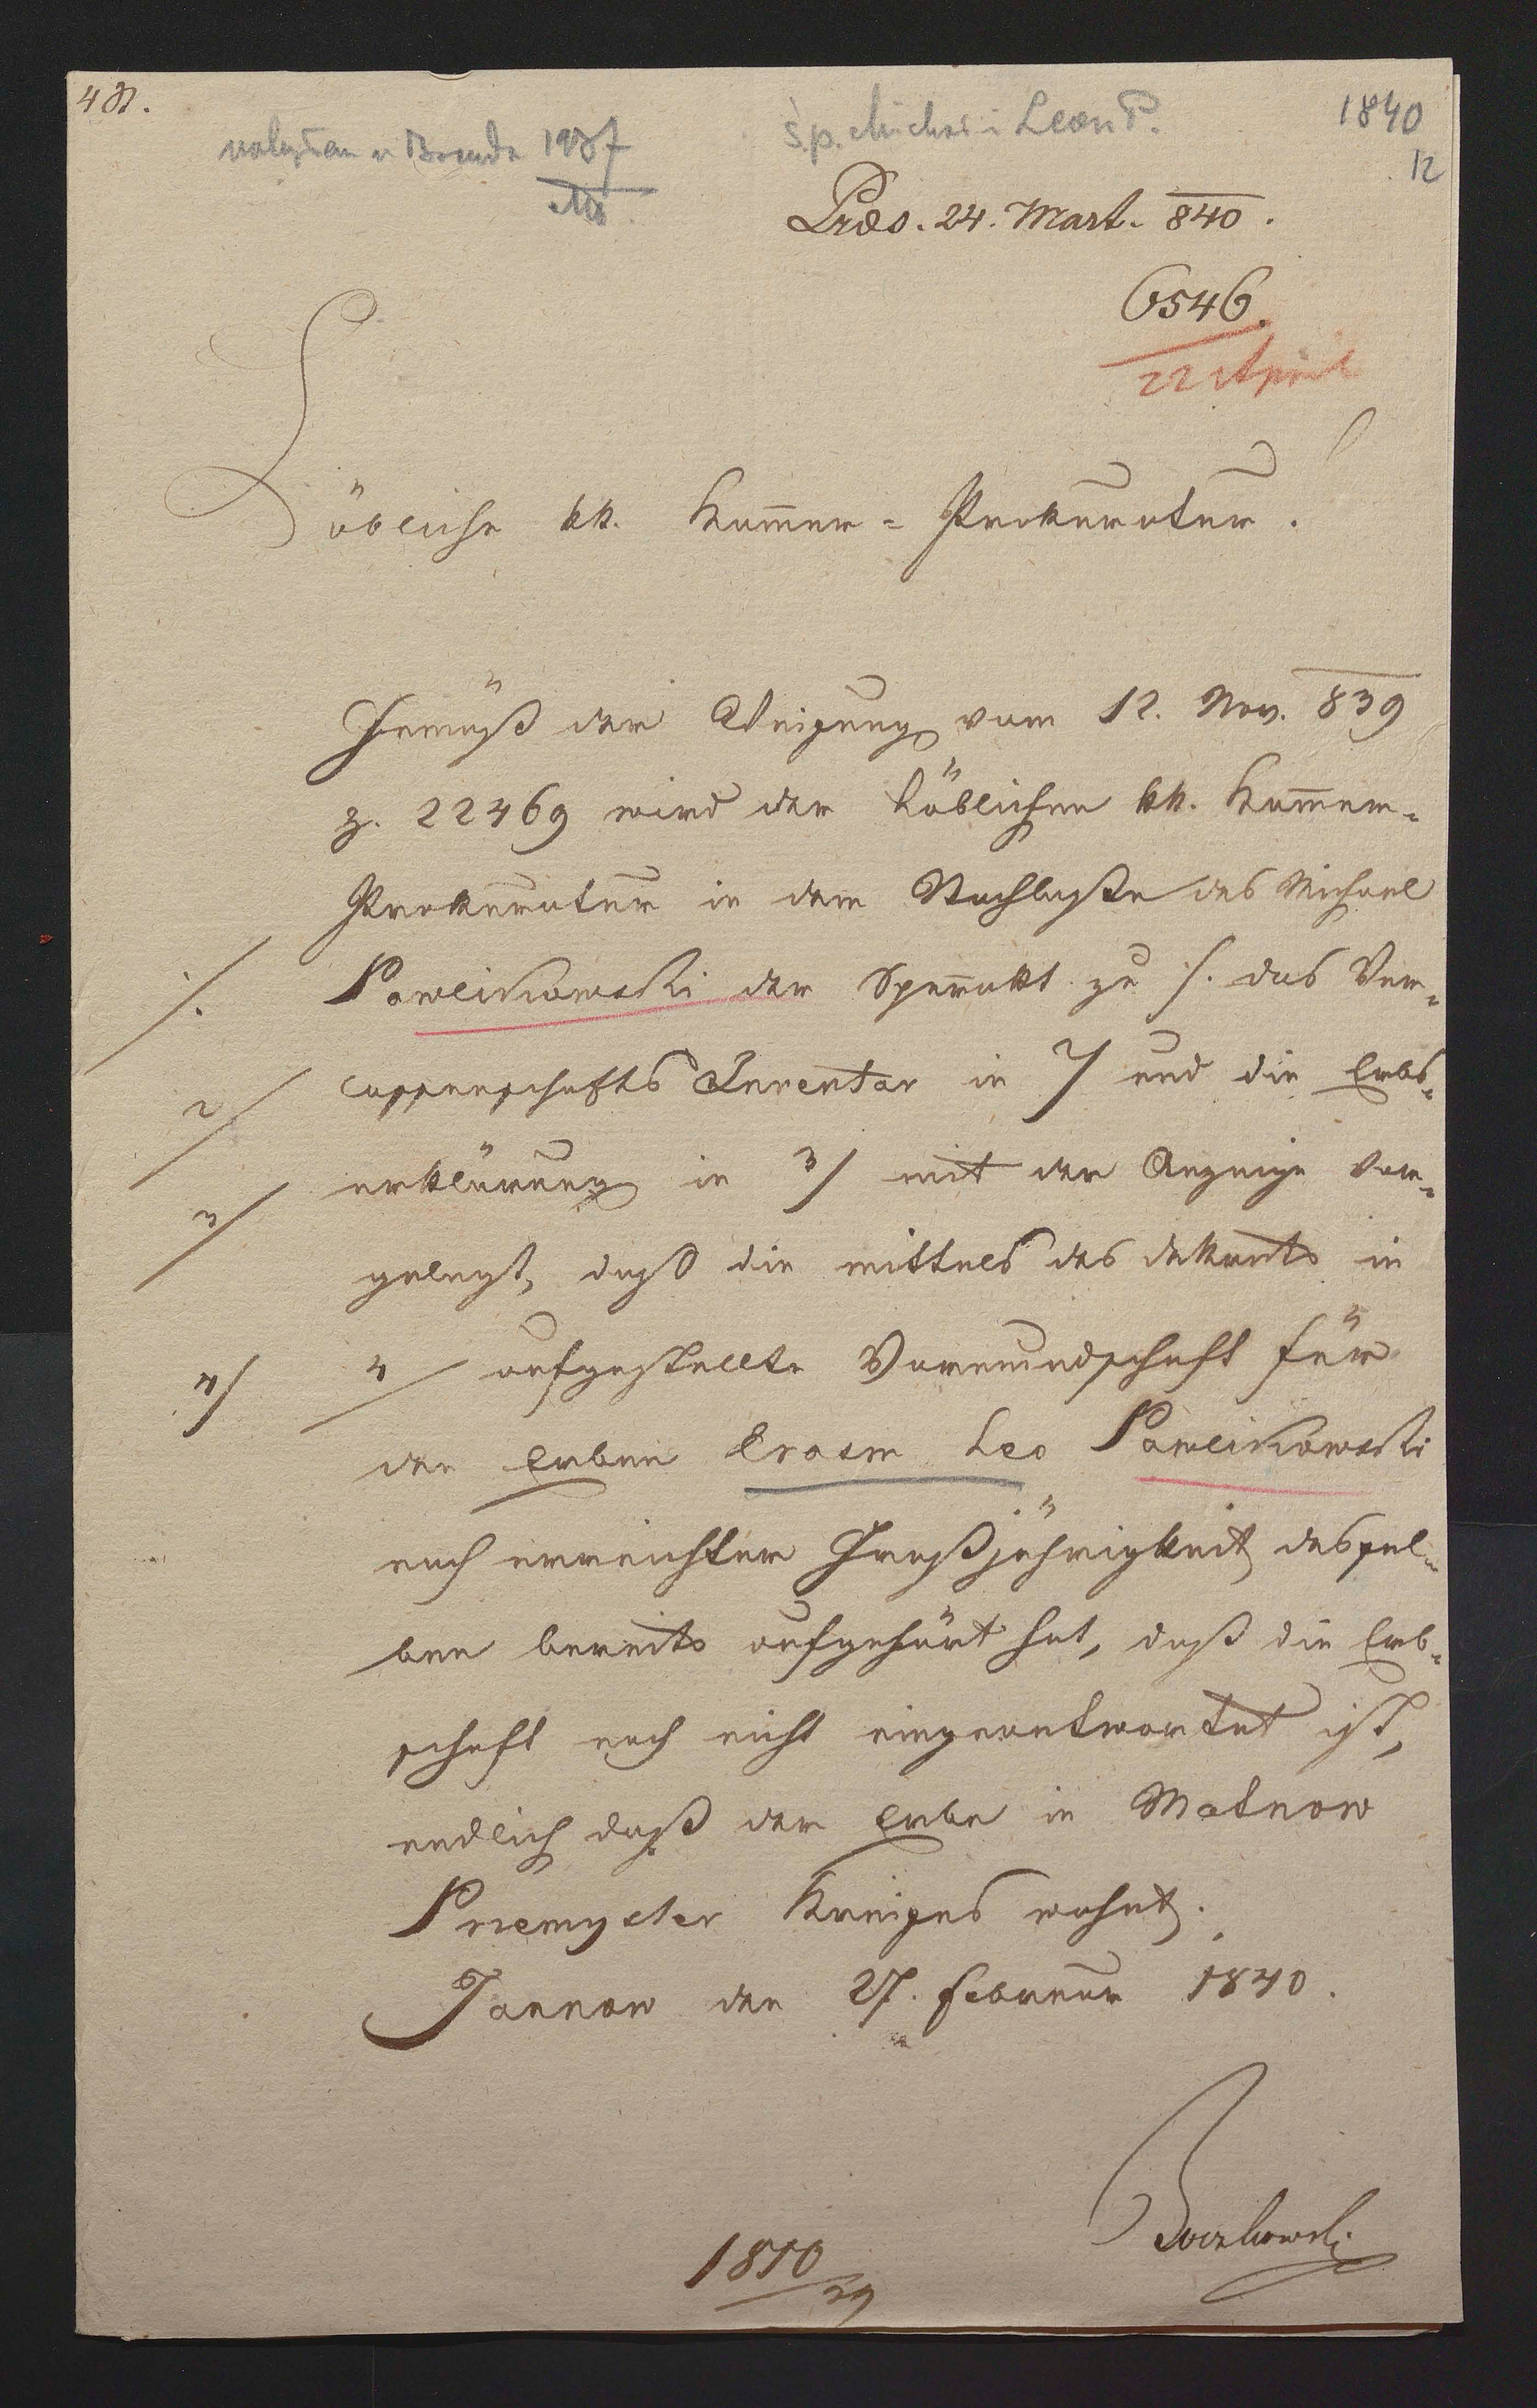 4 St.
1937
ś.p. Michał i Leon P.
1840
12
Präs. 24. Mart. 840.
6546.
22 April
Löbliche kk. Kam̅er-Prokuratur.
Gemäß der Weisung vom 12. Nov. 839
z. 22469 wird der Löblichen kk. Kam̅er-
Prokuratur in dem Nachlaße des Michael
Pawlikowski der Sperrakt zu ·/. das Ver-
·/.
lassenschafts Inventar in 2/ und die Erbs-
2/
erklärung in 3/ mit der Anzeige vor-
3/
gelegt, daß die mittels des Dekrets in
4/ aufgestellte Vormundschaft für
4/
den Erben Erasm Leo Pawlikowski
nach erreichter Großjährigkeit dessel-
ben bereits aufgehört hat, daß die Erb-
schaft noch nicht eingeantwortet ist,
endlich daß der Erbe in
Przemysler Kreises wohnt.
den 27. Februar 1840.
1810/39